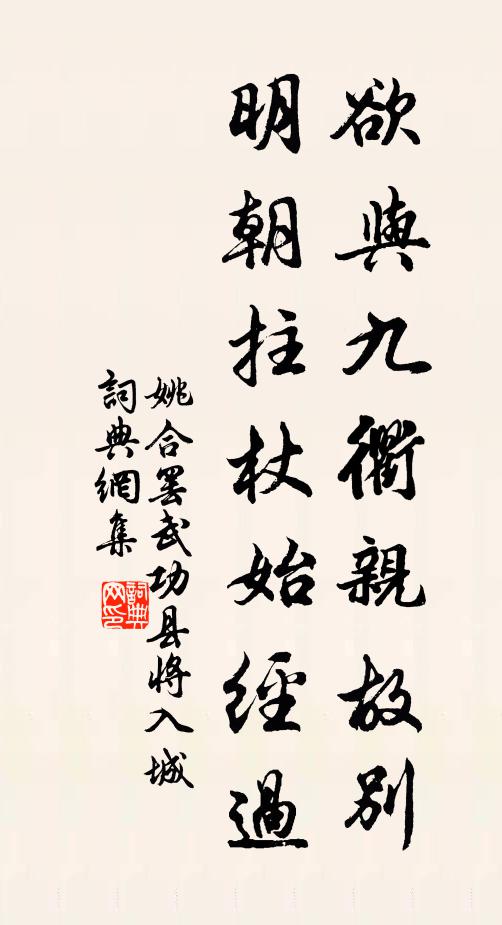 欲與九衢親故別
明朝拄杖始經過
姚合罢武功县將入城
詞典網集
詞典網印